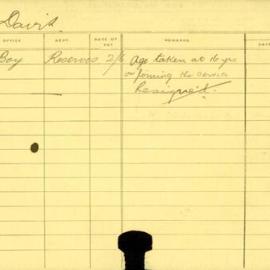 David.
OFFICE DEPT. RATE OF PAY REMARKS DATE
Boy Reserves 2/6 Age taken at 16 yrs
on joining the service
Resigned.